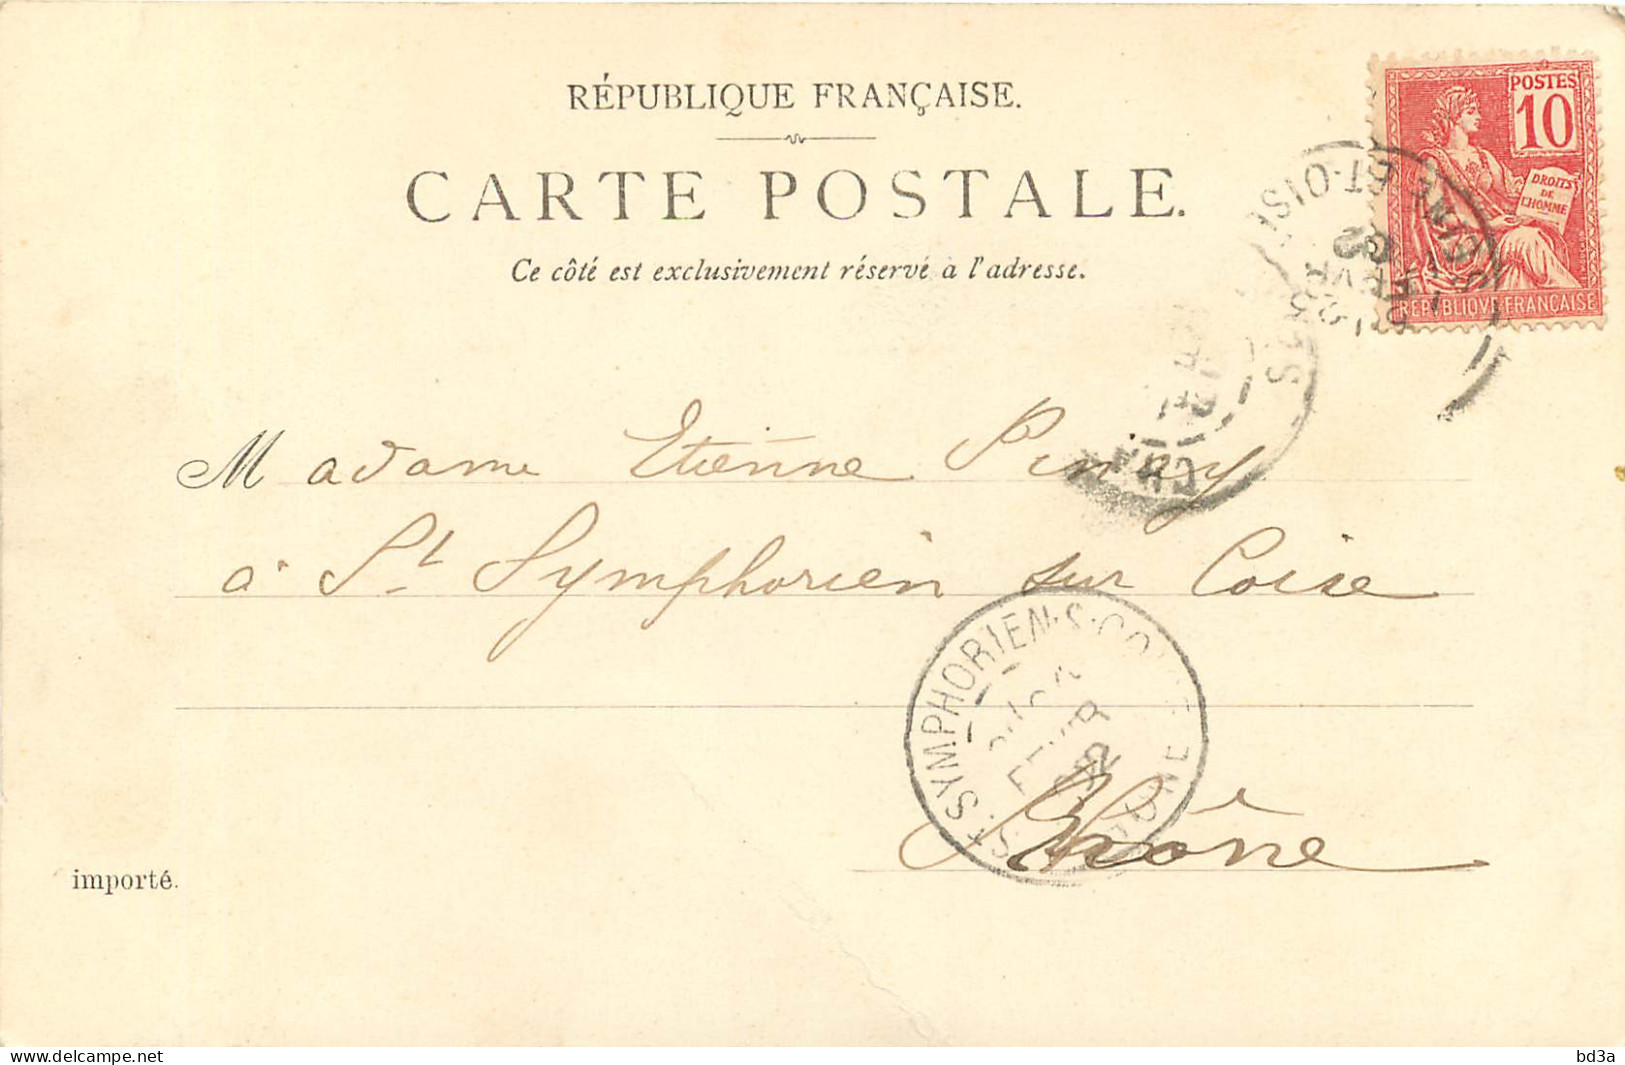 RÉPUBLIQUE FRANÇAISE.
CARTE POSTALE.
Ce côté est exclusivement réservé à l'adresse.
POSTES
10
DROITS
DE
L'HOMME
REPUBLIQUE FRANÇAISE
SEINE-ET-OISE
Madame Etienne Pinay
à St Symphorien sur Coise
ST SYMPHORIEN-S-COISE
FEVR
Rhône
importé.
www.delcampe.net
bd3a